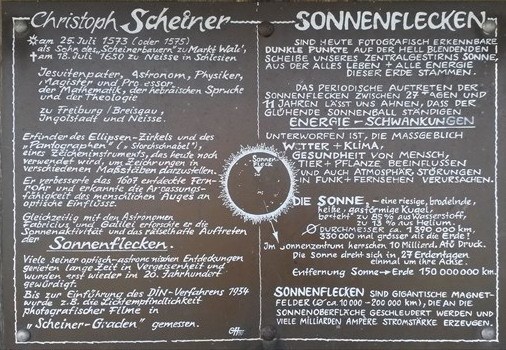 Christoph Scheiner
* am 25. Juli 1573 (oder 1575)
als Sohn des „Scheinerbauern“ zu Markt Wald,
† am 18. Juli 1650 zu Neisse in Schlesien
Jesuitenpater, Astronom, Physiker,
Magister und Professor
der Mathematik, der hebräischen Sprache
und der Theologie
zu Freiburg/Breisgau,
Ingolstadt und Neisse.
Erfinder des Ellipsen-Zirkels und des
„Pantographen“ („Storchschnabel“),
eines Zeicheninstruments, das heute noch
verwendet wird, um Zeichnungen in
verschiedenen Maßstäben darzustellen.
Er verbesserte das 1608 entdeckte Fern-
rohr und erkannte die Anpassungs-
fähigkeit des menschlichen Auges an
optische Einflüsse.
Gleichzeitig mit den Astronomen
Fabricius und Galilei erforschte er die
Sonnenaktivität und das rätselhafte Auftreten
der Sonnenflecken.
Viele seiner optisch-astronomischen Entdeckungen
gerieten lange Zeit in Vergessenheit und
wurden erst wieder im 20. Jahrhundert
gewürdigt.
Bis zur Einführung des DIN-Verfahrens 1934
wurde z.B. die Lichtempfindlichkeit
photografischer Filme in
„Scheiner-Graden“ gemessen.
Sonnen
fleck
SONNENFLECKEN
SIND HEUTE FOTOGRAFISCH ERKENNBARE
DUNKLE PUNKTE AUF DER HELL BLENDENDEN
SCHEIBE UNSERES ZENTRALGESTIRNS SONNE,
AUS DER ALLES LEBEN + ALLE ENERGIE
DIESER ERDE STAMMEN.
DAS PERIODISCHE AUFTRETEN DER
SONNENFLECKEN ZWISCHEN 27 TAGEN UND
11 JAHREN LÄSST UNS AHNEN, DASS DER
GLÜHENDE SONNENBALL STÄNDIGEN
ENERGIE-SCHWANKUNGEN
UNTERWORFEN IST, DIE MASSGEBLICH
WETTER + KLIMA,
GESUNDHEIT VON MENSCH,
TIER + PFLANZE BEEINFLUSSEN
UND AUCH ATMOSPHÄR. STÖRUNGEN
IN FUNK + FERNSEHEN VERURSACHEN.
DIE SONNE, – eine riesige, brodelnde,
heiße, gasförmige Kugel,
besteht zu 85 % aus Wasserstoff,
zu 13 % aus Helium.
DURCHMESSER ca. 1 390 000 km.
330 000 mal grösser als die Erde!
Im Sonnenzentrum herrschen 10 Milliard. Atü Druck.
Die Sonne dreht sich in 27 Erdentagen
einmal um ihre Achse.
Entfernung Sonne→Erde 150 000 000 km.
SONNENFLECKEN SIND GIGANTISCHE MAGNET-
FELDER (Ø ca. 10 000 - 200 000 km), DIE AN DIE
SONNENOBERFLÄCHE GESCHLEUDERT WERDEN UND
VIELE MILLIARDEN AMPÈRE STROMSTÄRKE ERZEUGEN.